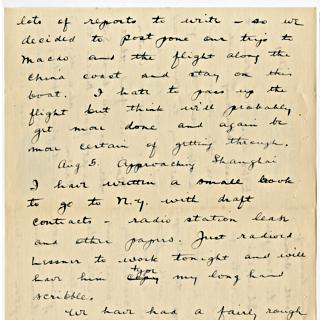 lots of reports to write - so we
decided to postpone our trip to
Macao and the flight along the
China coast and stay on this
boat. I hate to pass up the
flight but think will probably
get more done and again be
more certain of getting through.
Aug 5. Approaching Shanghai
I have written a small book
to go to N.Y. with draft
contracts - radio station leases
and other papers. Just radioed
to work tonight and will
type
have him copy my long hand
scribble.
We have had a fairly rough